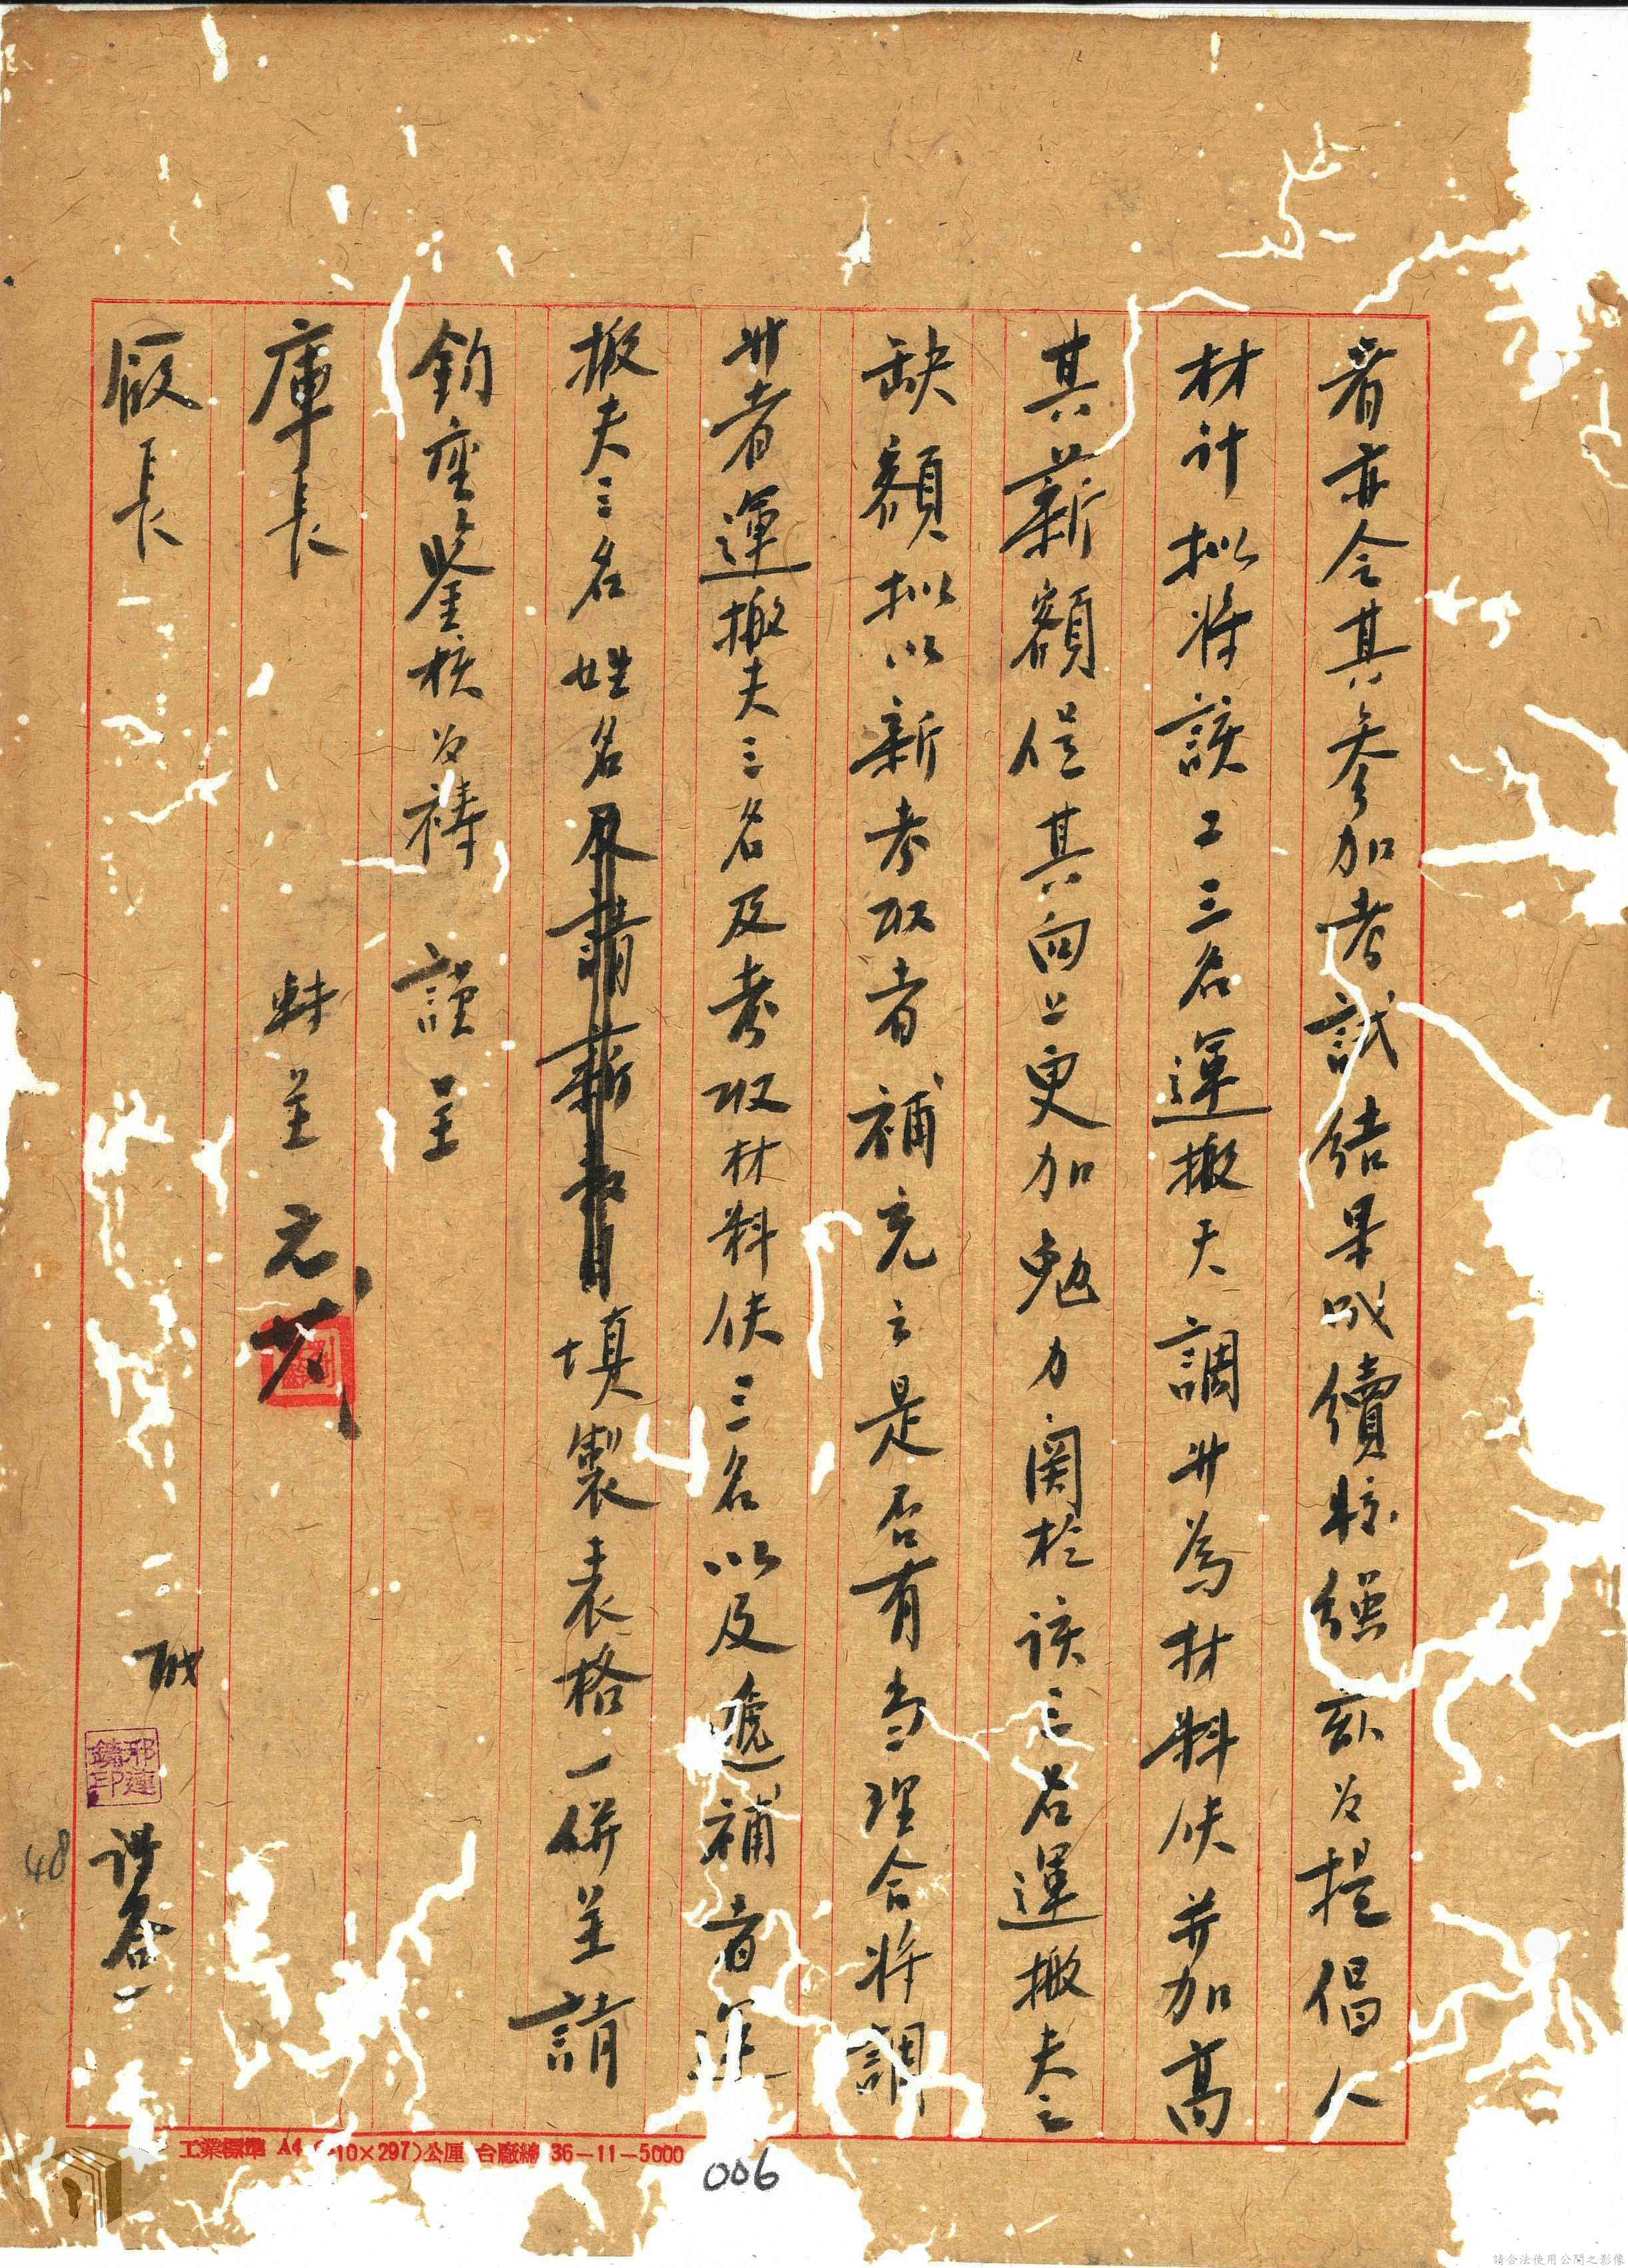 者亦令其參加考試結果成績較經亟為提倡人
材計拟將該工三名運搬夫調升為材料伕并加高
其薪額促其向上更加勉力関於該三名運搬夫之
缺額拟以新考取者補充之是否有当理合將調
升者運搬夫三名及考取材料伕三名以及遞補者運
搬夫三名姓名及請薪數目填製表格一併呈請
鈞座鑒核为禱 謹呈
庫長 轉呈
廠長
邢蓮鑄印
48
工業標準 A4 (210×297)公厘 台廠綿 36-11-5000
006
請合法使用公開之影像